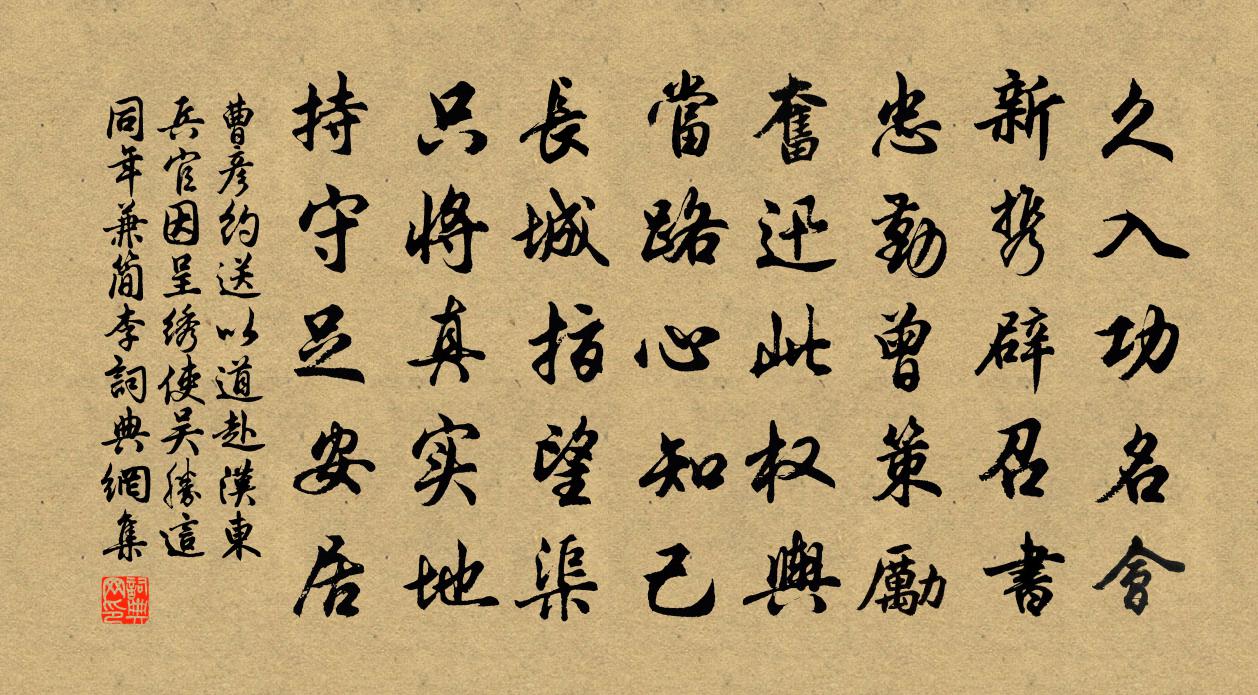 久入功名會
新携辟召書
忠勤曾策勵
奮迅此权輿
當路心知己
長城指望渠
只將真实地
持守足安居
曹彦約送以道赴漢東
兵官因呈绣使吴勝這
同年兼簡李詞典網集
詞典
网印